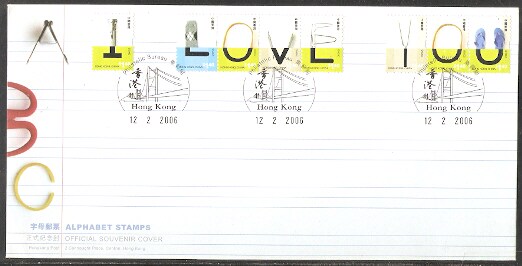 I LOVE YOU
Philatelic Bureau
香港
Hong Kong
12 2 2006
Philatelic Bureau
香港
Hong Kong
12 2 2006
Philatelic Bureau
香港
Hong Kong
12 2 2006
A
B
C
字母郵票 ALPHABET STAMPS
正式紀念封 OFFICIAL SOUVENIR COVER